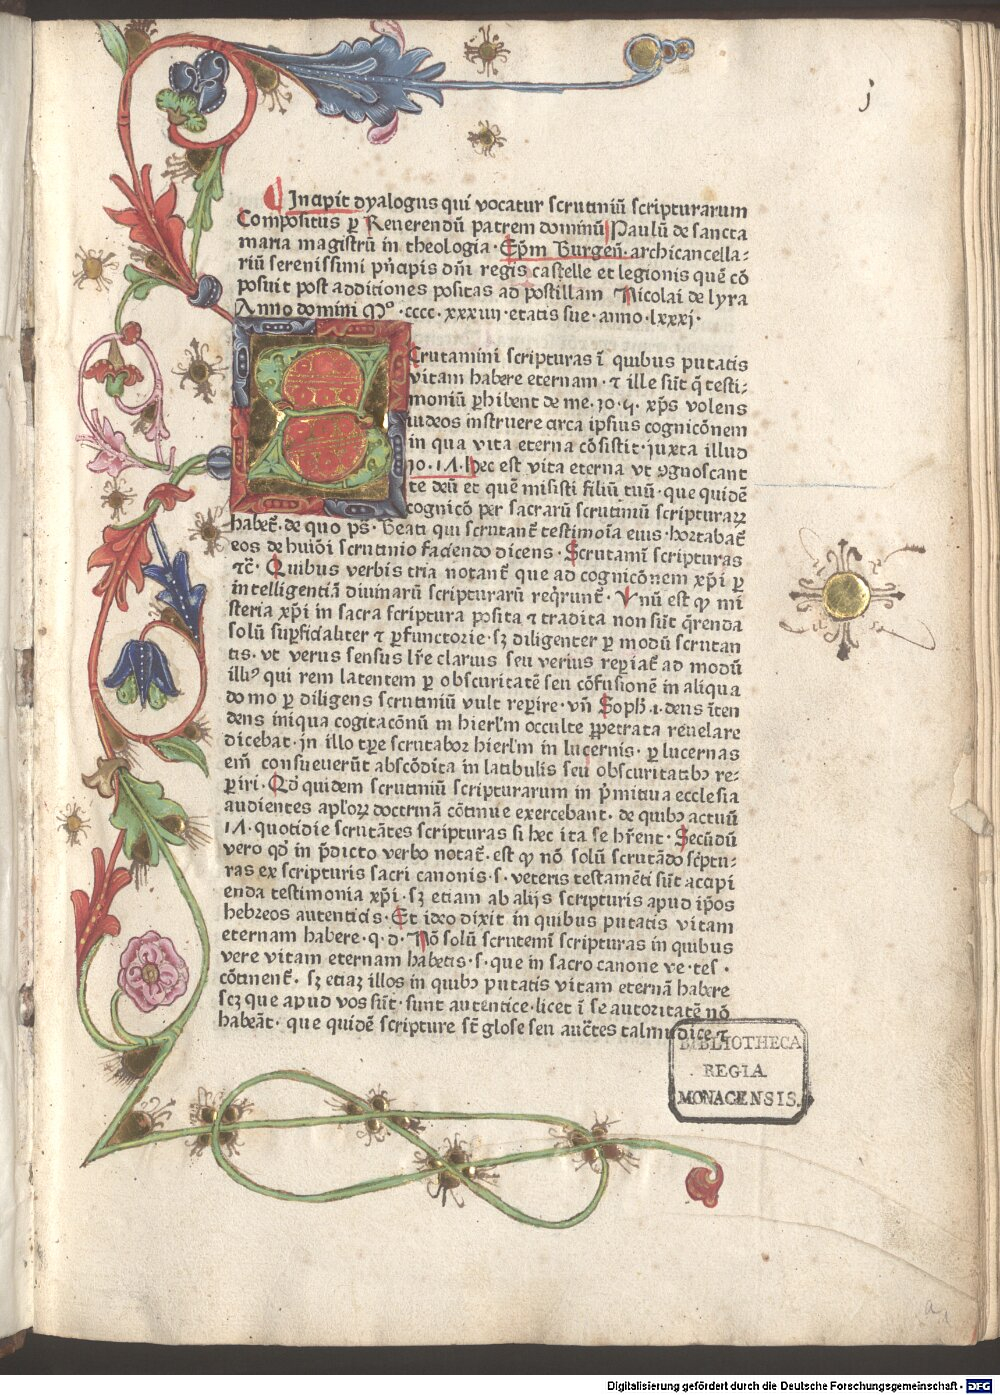 j
Incipit dyalogus qui vocatur scrutiniū scripturarum
Compositus ꝑ Reuerendū patrem dominū Paulū de sancta
maria magistrū in theologia· Epm̄ Burgeñ· archicancella⸗
riū serenissimi pn̄cipis dn̄i regis castelle et legionis quē cō
posuit post additiones positas ad postillam Nicolai de lyra
Anno domini Mº ·cccc·xxxiiij·etatis sue·anno·lxxxj·
Crutamini scripturas ī quibus putatis
vitam habere eternam·⁊ ille sūt q̄ testi⸗
moniū ꝑhibent de me·Jo·ij· xp̄s volens
iudeos instruere circa ipsius cognicōnem
in qua vita eterna cōsistit·iuxta illud
Jo·17·Hec est vita eterna vt ꝯgnoscant
te deū et quē misisti filiū tuū·que quidē
cognicō per sacrarū scrutiniū scripturaꝝ
habet̄·de quo ps̄·Beati qui scrutant̄ testimoīa eius·hortabat̄
eos de hui⁹mōi scrutinio faciendo dicens·Scrutamī scripturas
⁊c̄·Quibus verbis tria notant̄ que ad cognicōnem xp̄i ꝑ
intelligentiā diuinarū scripturarū reqrunt̄·Vnū est ꝙ mi
steria xp̄i in sacra scriptura posita ⁊ tradita non sūt q̄renda
solū suꝑficialiter ⁊ ꝑfunctorie·sꝫ diligenter ꝑ modū scrutan
tis·vt verus sensus lr̄e clarius seu verius reꝑiat̄ ad modū
illi⁹ qui rem latentem ꝑ obscuritatē seu cōfusionē in aliqua
domo ꝑ diligens scrutiniū vult reꝑire·vn̄ Soph·1·deus ītен
dens iniqua cogitacōnū in hierl̄m occulte ꝑpetrata reuelare
dicebat·jn illo tꝑe scrutabor hierl̄m in lucernis·ꝑ lucernas
em̄ consueuerūt abscōdita in latibulis seu obscuritatibꝫ re⸗
ꝑiri·Qd̄ quidem scrutiniū scripturarum in pͥmitiua ecclesia
audientes apl̄oꝝ doctrinā cōtinue exercebant·de quibꝫ actuū
17·quotidie scrutātes scripturas si hec ita se hr̄ent·Secūdū
vero qd̄ in p̄dicto verbo notat̄·est ꝙ nō solū scrutādo sc̄ptu⸗
ras ex scripturis sacri canonis·s·veteris testamēti sūt accipi
enda testimonia xp̄i·sꝫ etiam ab alijs scripturis apud ip̄os
hebreos autenticis·Et ideo dixit in quibus putatis vitam
eternam habere·q·d·Nō solū scrutemī scripturas in quibus
vere vitam eternam habetis·s·que in sacro canone ve·tes·
cōtinent̄·sꝫ etiaꝫ illos in quibꝫ putatis vitam eternā habere
scꝫ que apud vos sūt·sunt autentice·licet ī se autoritatē nō
habeāt·que quidē scripture sc̄ glose seu auc̄tes talmudice ⁊
BIBLIOTHECA
REGIA
MONACENSIS.
a 1
Digitalisierung gefördert durch die Deutsche Forschungsgemeinschaft - DFG